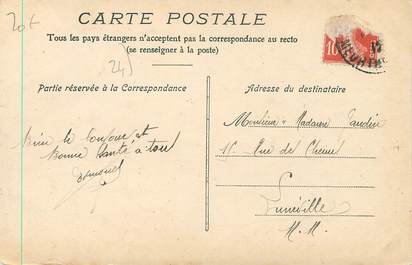 20f
CARTE POSTALE
Tous les pays étrangers n'acceptent pas la correspondance au recto
(se renseigner à la poste)
24
Partie réservée à la Correspondance
Adresse du destinataire
10
Bonne Santé à tous
Monsieur & Madame
15 Rue de
Lunéville
M.M.